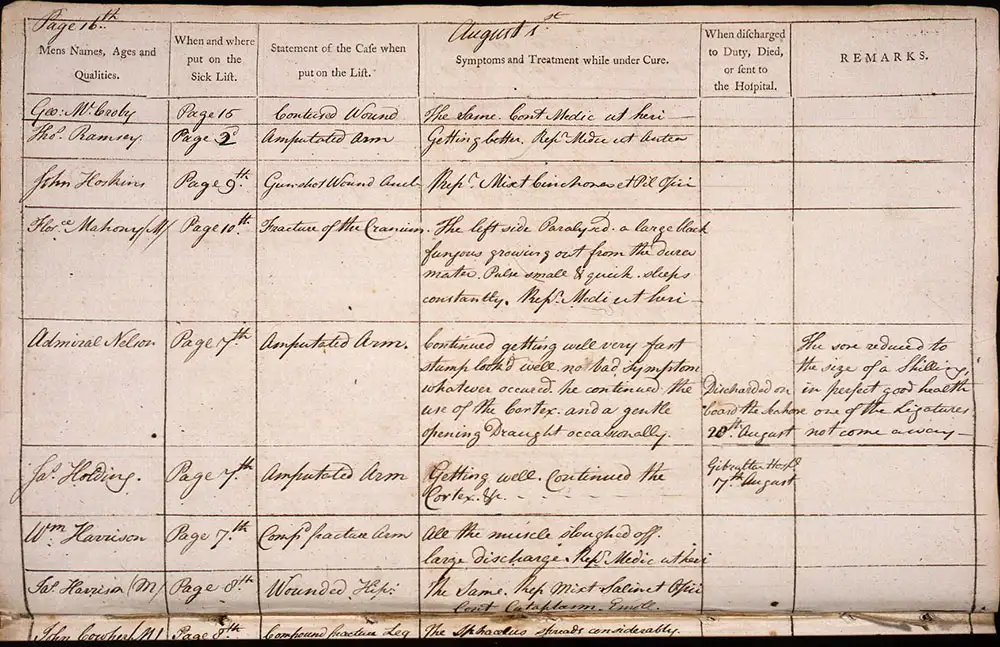 Page 16th
August 1st
Mens Names, Ages and Qualities.
When and where put on the Sick List.
Statement of the Case when put on the List.
Symptoms and Treatment while under Cure.
When discharged to Duty, Died, or sent to the Hospital.
REMARKS.
Geo: McCroby Page 15 Contused Wound The Same. Cont Medic ut heri
Thos. Ramsey Page 2d Amputated Arm Getting better. Repr. Medic ut Antea
John Hoskins Page 9th. Gunshot Wound Repr. Mixt Cinchonae et Pil Opii
Flor.ce Mahony (M) Page 10th. Fracture of the Cranium. The left side Paralysed. a large black
fungous growing out from the dura
mater. Pulse small & quick. sleeps
constantly. Repr. Medic ut heri
Admiral Nelson Page 7th. Amputated Arm. Continued getting well very fast
stump look'd well no bad symptom
whatever occured. he continued the
use of the Cortex. and a gentle
opening Draught occasionally.
Discharded on
board the Seahorse
20th. August
The sore reduced to
the size of a Shilling,
in perfect good health
one of the Ligatures
not come away
Jas. Holding. Page 7th. Amputated Arm Getting well. Continued the
Cortex. &c.
Gibralter Hosl.
17th August
Wm Harrison Page 7.th Compd fracture Arm All the muscle sloughed off.
large discharge. Repr. Medic ut heri
Jas. Harrison (M) Page 8th Wounded Hip: The Same. Rep Mixt Salin et Opii
Cont Cataplasm. Emoll.
John Cowper (M) Page 8th Compound fracture Leg The Sphacelus spreads considerably.